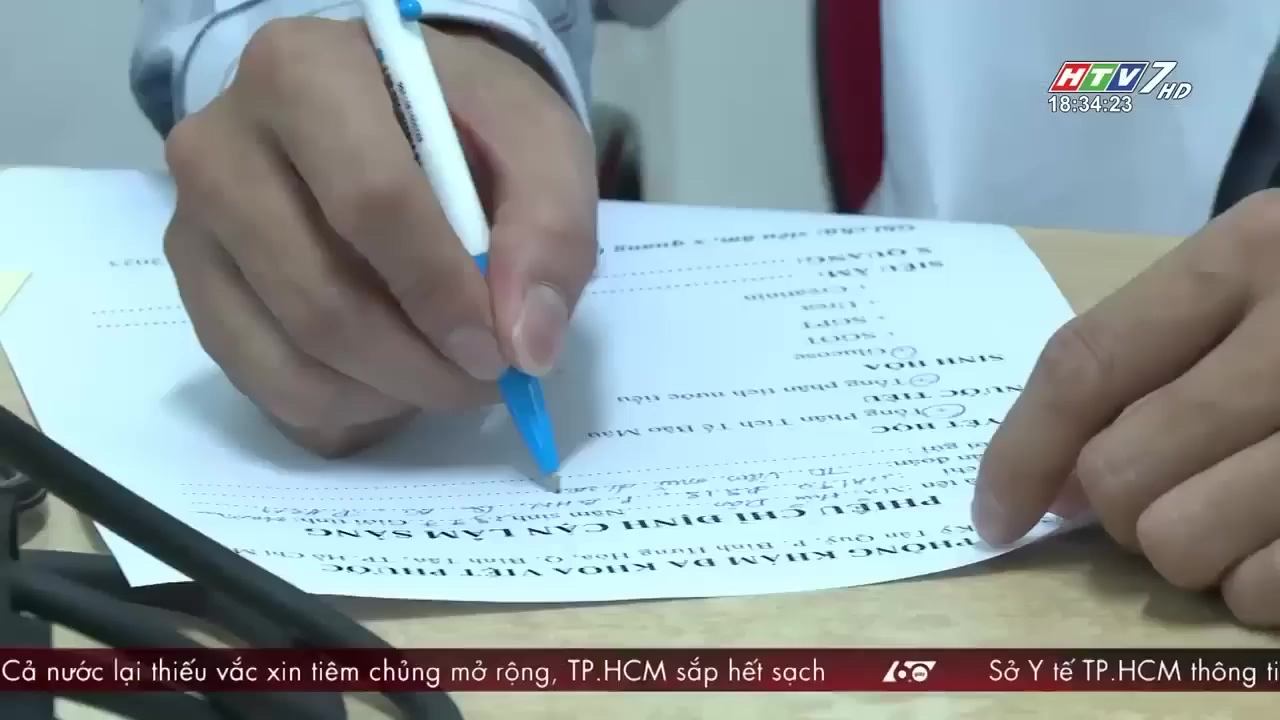 HTV7 HD
18:34:23
PHÒNG KHÁM ĐA KHOA VIỆT PHƯỚC
Kỳ Tân Quý, P. Bình Hưng Hòa, Q. Bình Tân, TP. Hồ Chí M
PHIẾU CHỈ ĐỊNH CẬN LÂM SÀNG
tên Năm sinh: Giới tính
đoán:
YẾT HỌC
Tổng Phân Tích Tế Bào Máu
NƯỚC TIỂU
Tổng phân tích nước tiểu
SINH HÓA
Glucose
SGOT
SGPT
Urea
Creatinin
SIÊU ÂM:
X QUANG:
Ghi chú: siêu âm, x quang
Cả nước lại thiếu vắc xin tiêm chủng mở rộng, TP.HCM sắp hết sạch 60 Sở Y tế TP.HCM thông ti